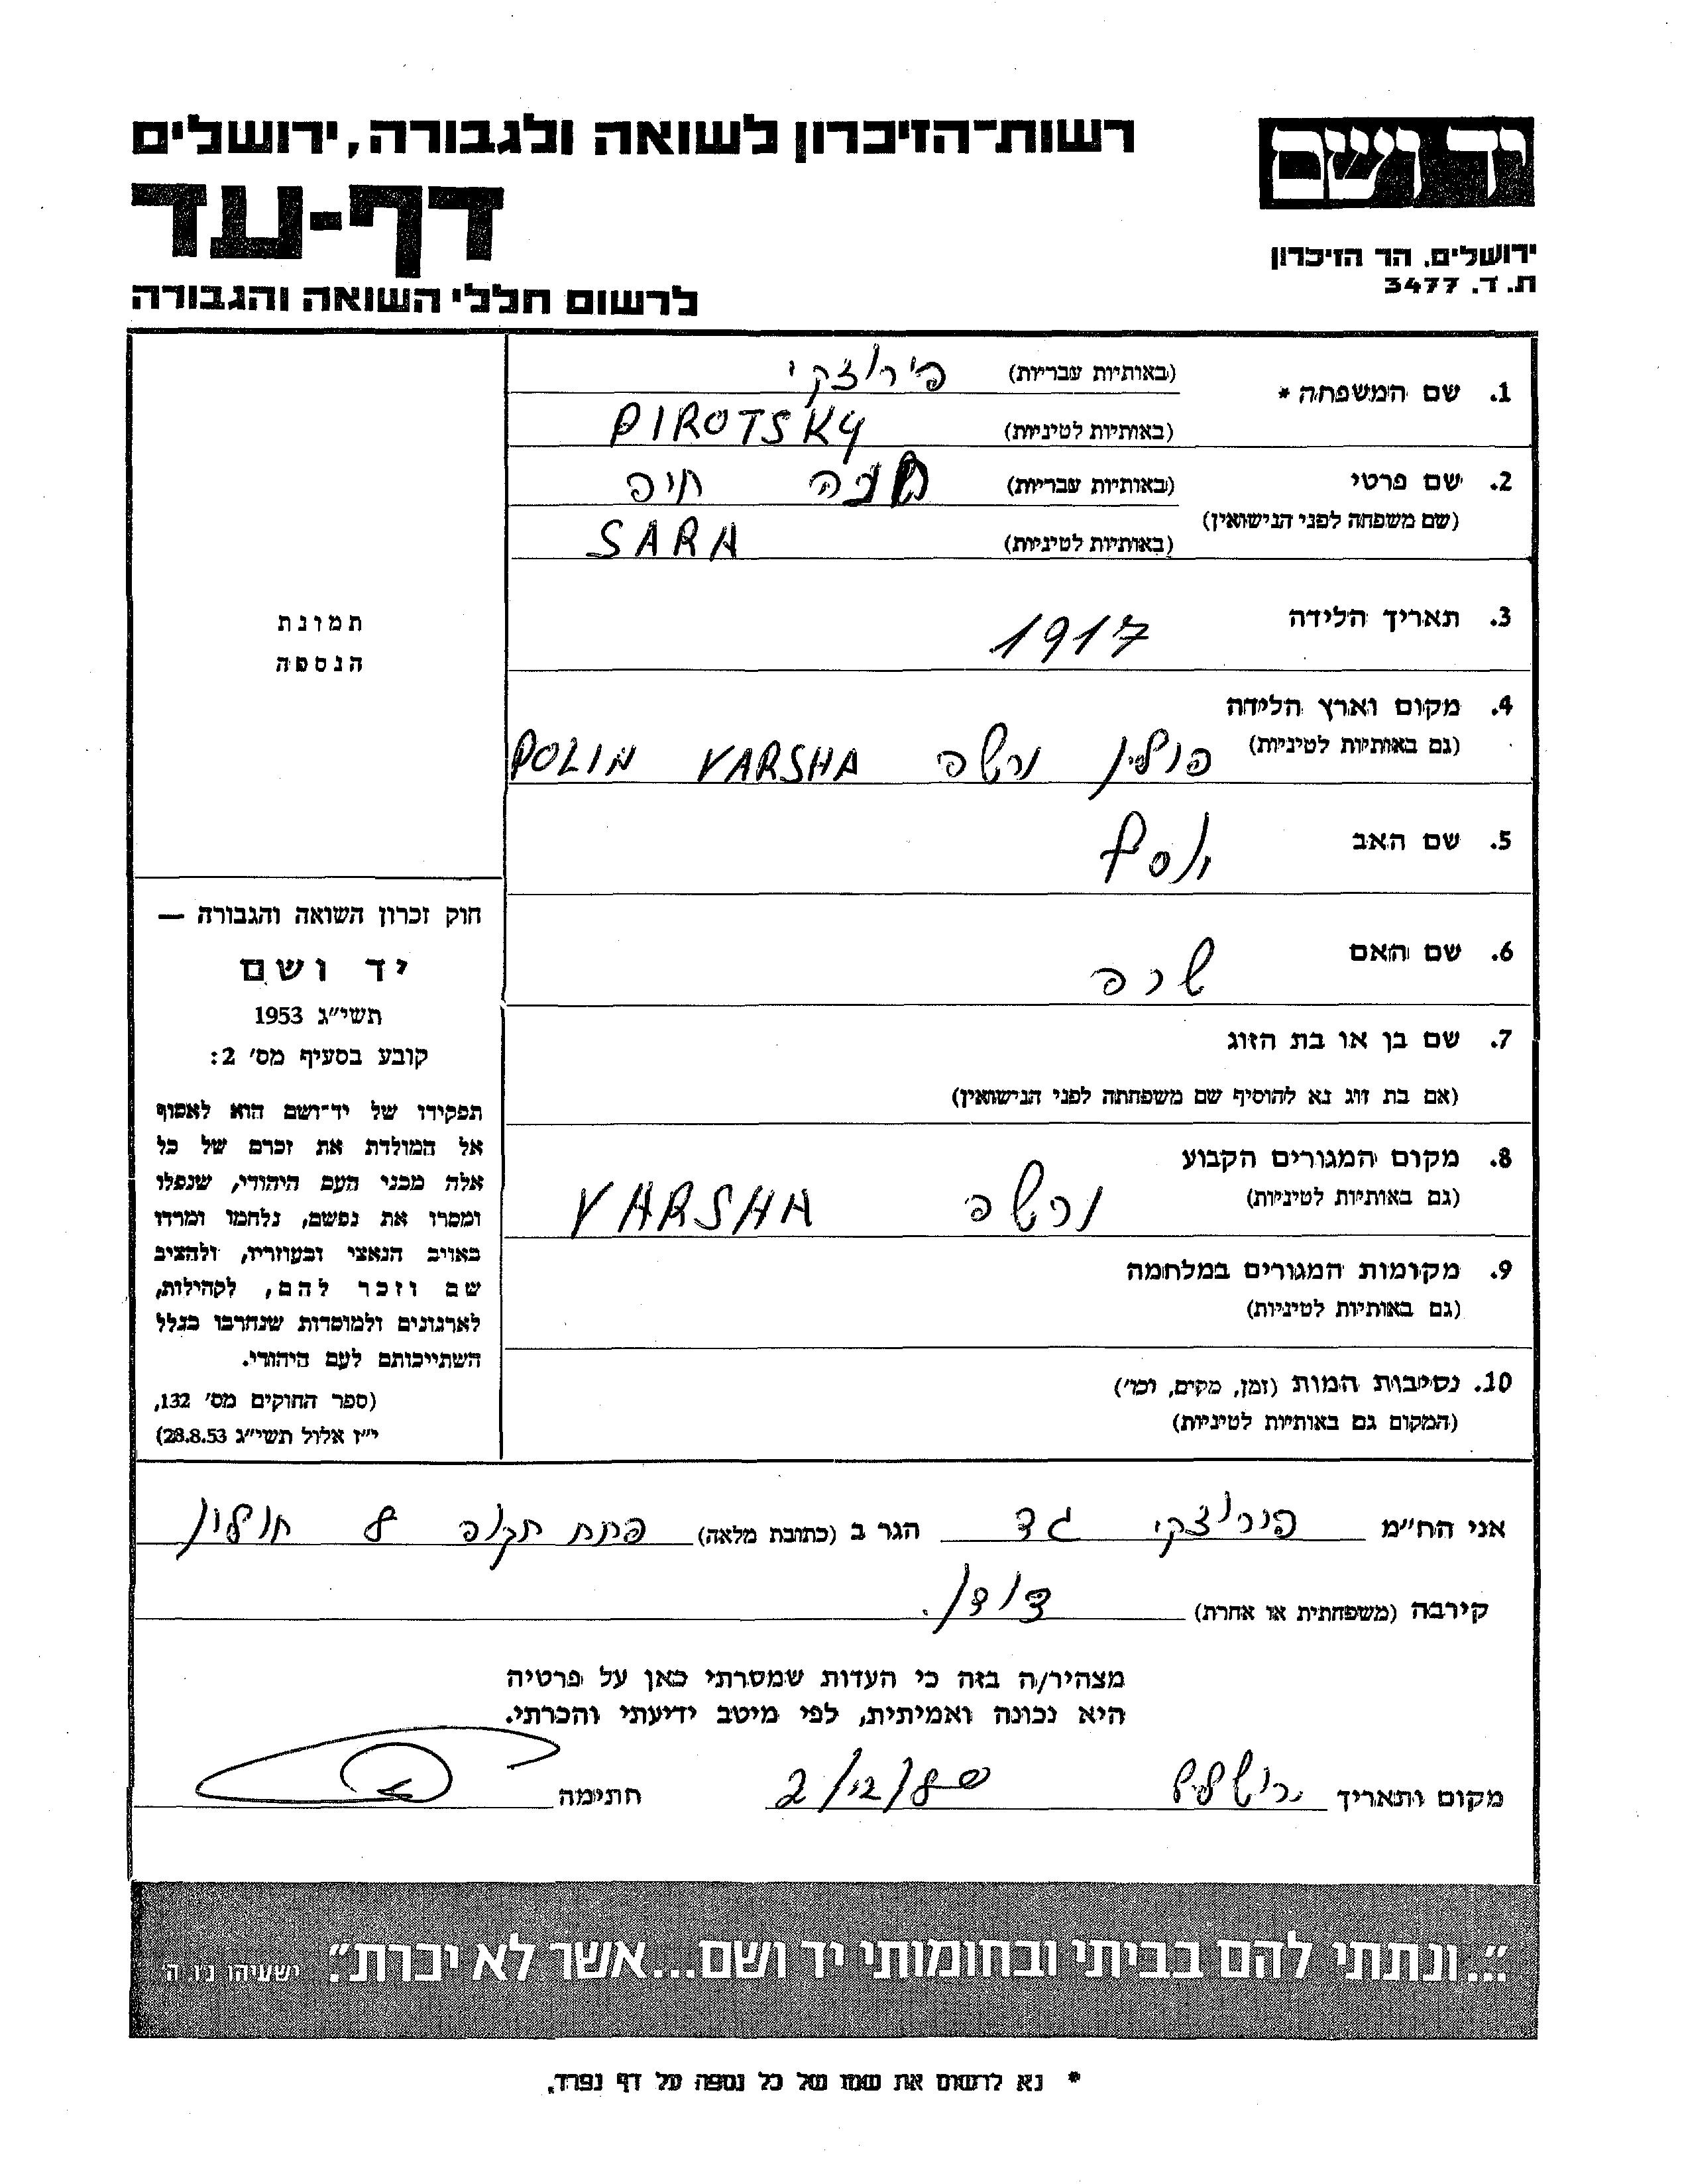 רשות־הזיכרון לשואה ולגבורה, ירושלים
דף-עד
לרשום חללי השואה והגבורה
יד ושם
ירושלים, הר הזיכרון
ת. ד. 3477
1. שם המשפחה *
(באותיות עבריות) פירוצקי
(באותיות לטיניות) PIROTSKY
2. שם פרטי
(שם משפחה לפני הנישואין)
(באותיות עבריות) חיה
(באותיות לטיניות) SARA
3. תאריך הלידה 1917
4. מקום וארץ הלידה
(גם באותיות לטיניות) פולין ורשה VARSHA POLIN
5. שם האב יוסף
6. שם האם שרה
7. שם בן או בת הזוג
(אם בת זוג נא להוסיף שם משפחתה לפני הנישואין)
8. מקום המגורים הקבוע
(גם באותיות לטיניות) ורשה VARSHA
9. מקומות המגורים במלחמה
(גם באותיות לטיניות)
10. נסיבות המות (זמן, מקום, וכו')
(המקום גם באותיות לטיניות)
תמונת
הנספה
חוק זכרון השואה והגבורה —
יד ושם
תשי״ג 1953
קובע בסעיף מס' 2:
תפקידו של יד־ושם הוא לאסוף
אל המולדת את זכרם של כל
אלה מבני העם היהודי, שנפלו
ומסרו את נפשם, נלחמו ומרדו
באויב הנאצי ובעוזריו, ולהציב
שם וזכר להם, לקהילות,
לארגונים ולמוסדות שנחרבו בגלל
השתייכותם לעם היהודי.
(ספר החוקים מס' 132,
י״ז אלול תשי״ג 28.8.53)
אני הח״מ פירוצקי גד הגר ב (כתובת מלאה) פתח תקוה 8 חולון
קירבה (משפחתית או אחרת) דודן.
מצהיר/ה בזה כי העדות שמסרתי כאן על פרטיה
היא נכונה ואמיתית, לפי מיטב ידיעתי והכרתי.
מקום ותאריך ירושלים 2/12/ חתימה
"...ונתתי להם בביתי ובחומותי יד ושם...אשר לא יכרת". ישעיהו נו, ה'
* נא לרשום את שמו של כל נספה על דף נפרד.